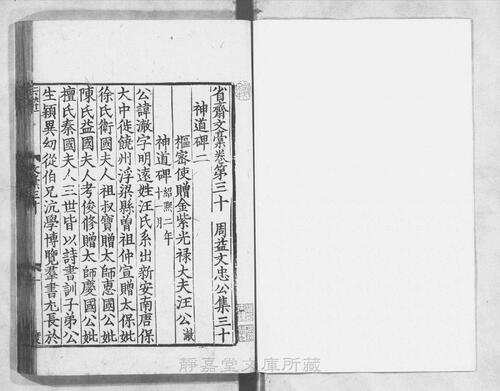 省齋文藁卷第三十　周益文忠公集三十
神道碑二
樞密使贈金紫光禄大夫汪公澈
神道碑紹熙二年十一月
公諱澈字明遠姓汪氏系出新安南唐保
大中徙饒州浮梁縣曽祖仲宣贈太保妣
徐氏衛國夫人祖叔寶贈太師惠國公妣
陳氏益國夫人考俊修贈太師慶國公妣
檀氏秦國夫人三世皆以詩書訓子弟公
生穎異㓜從伯兄沆學博覽羣書尤長於
靜嘉堂文庫所藏